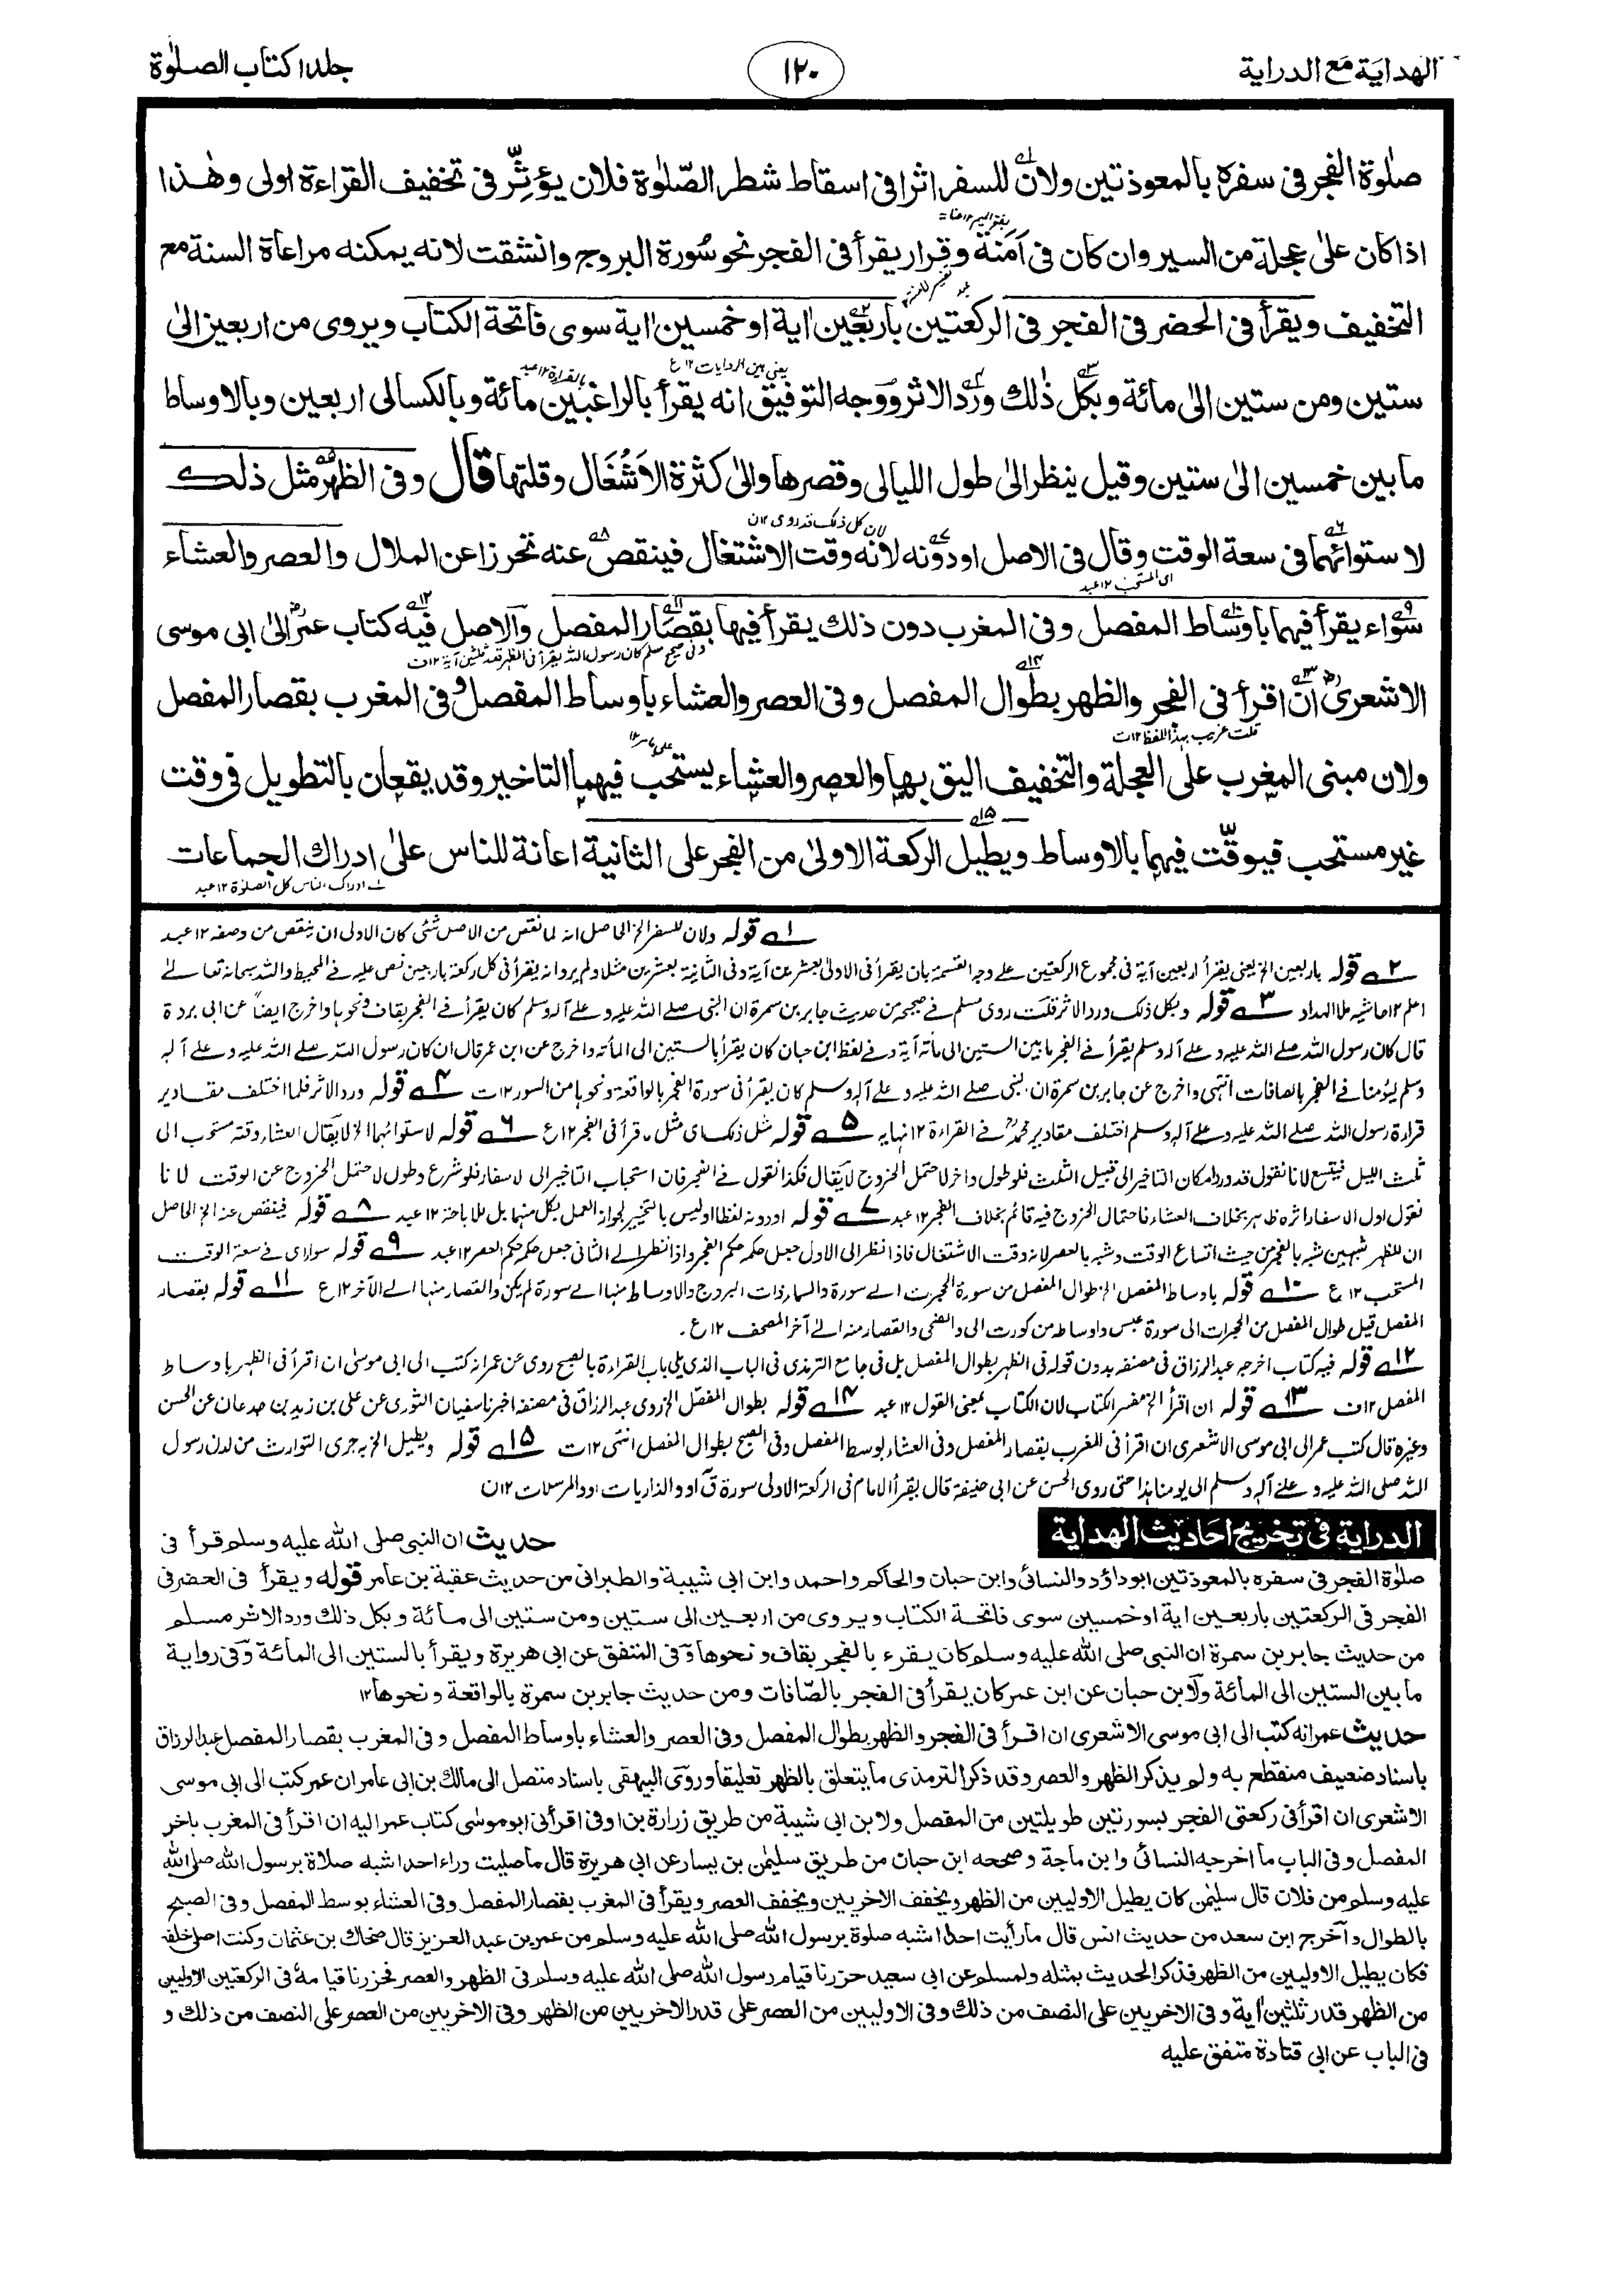 الهداية مع الدراية
١٢٠
جلد١ كتاب الصلوٰة
صلوٰة الفجر فى سفره بالمعوذتين ولان للسفر اثرا فى اسقاط شطر الصّلوٰة فلان يؤثِّر فى تخفيف القراءة اولى وهٰذا
اذا كان علىٰ عجلة من السير وان كان فى اَمَنة وقرار يقرأ فى الفجر نحو سُورة البروج وانشقت لانه يمكنه مراعاة السنة مع
التخفيف ويقرأ فى الحضر فى الفجر فى الركعتين باربعين اٰية او خمسين اٰية سوى فاتحة الكتاب ويروى من اربعين الىٰ
يعنى بين الروايات ١٢ ع
ستين ومن ستين الى مائة وبكل ذٰلك ورد الاثر ووجه التوفيق انه يقرأ بالراغبين مائة وبالكسالى اربعين وبالاوساط
ما بين خمسين الىٰ ستين وقيل ينظر الىٰ طول الليالى وقصرها والىٰ كثرة الاَشْغَال وقلتها قال وفى الظهر مثل ذلك
لان كل ذلك قد روى ١٢ن
لاستوائهما فى سعة الوقت وقال فى الاصل او دونه لانه وقت الاشتغال فينقص عنه تحرزا عن الملال والعصر والعشاء
اى المستحب ١٢عبد
سواء يقرأ فيهما باوساط المفصل وفى المغرب دون ذلك يقرأ فيها بقصار المفصل والاصل فيه كتاب عمر الىٰ ابى موسى
وفى صحيح مسلم كان رسول الله يقرأ فى الظهر قدر ثلثين آية ١٢ف
الاشعرى ان اقرأ فى الفجر والظهر بطوال المفصل وفى العصر والعشاء باوساط المفصل وفى المغرب بقصار المفصل
قلت غريب بهذا اللفظ ١٢ت
ولان مبنى المغرب على العجلة والتخفيف اليق بها والعصر والعشاء يستحب فيهما التاخير وقد يقعان بالتطويل فى وقت
غير مستحب فيوقّت فيهما بالاوساط ويطيل الركعة الاولىٰ من الفجر على الثانية اعانة للناس علىٰ ادراك الجماعات
١ قوله ولان للسفر الخ الحاصل انه لما نقص من الاصل شئى كان الاولى ان ينقص من وصفه ١٢ عبد
٢ قوله باربعين الخ يعنى يقرأ اربعين آية فى مجموع الركعتين على وجه القسمة بان يقرأ فى الاولى بعشرين آية وفى الثانية بعشرين مثلا ولم يرد انه يقرأ فى كل ركعة باربعين نص عليه فى المحيط والله سبحانه تعالى
اعلم ١٢ حاشيه ملا الهداد ٣ قوله وبكل ذلك ورد الاثر قلت روى مسلم فى صحيحه من حديث جابر بن سمرة ان النبى صلى الله عليه وعلى آله وسلم كان يقرأ فى الفجر بقاف ونحوها واخرج ايضاً عن ابى بردة
قال كان رسول الله صلى الله عليه وعلى آله وسلم يقرأ فى الفجر ما بين الستين الى مائة آية وفى لفظ ابن حبان كان يقرأ بالستين الى المأته واخرج عن ابن عمر قال ان كان رسول الله صلى الله عليه وعلى آله
وسلم ليؤمنا فى الفجر بالصافات انتهى واخرج عن جابر بن سمرة ان النبى صلى الله عليه وعلى آله وسلم كان يقرأ فى سورة الفجر بالواقعة ونحوها من السور ١٢ ت ٤ قوله ورد الاثر فلما اختلف مقادير
قراءة رسول الله صلى الله عليه وعلى آله وسلم اختلف مقادير محمد فى القراءة ١٢ نهايه ٥ قوله مثل ذلك اى مثل ما قرأ فى الفجر ١٢ ع ٦ قوله لاستوائهما الخ لا يقال العشاء وقته مستحب الى
ثلث الليل فيتسع لانا نقول قد ورد امكان التاخير الى قبيل الثلث فلو طول واخر لاحتمل الخروج لا يقال فكذا نقول فى الفجر فان استحباب التاخير الى الاسفار فلو شرع وطول لاحتمل الخروج عن الوقت لانا
نقول اول الاسفار اثره ظاهر بخلاف العشاء فاحتمال الخروج فيه قائم بخلاف الفجر ١٢ عبد ٧ قوله او دونه لفظا او ليس بالتخيير لجواز العمل بكل منهما بل للاباحة ١٢ عبد ٨ قوله فينقص عنه الخ الحاصل
ان للظهر شبهين شبه بالفجر من حيث اتساع الوقت وشبه بالعصر لانه وقت الاشتغال فاذا نظر الى الاول جعل حكمه حكم الفجر واذا نظر الى الثانى جعل حكمه حكم العصر ١٢ عبد ٩ قوله سواء اى فى سعة الوقت
المستحب ١٢ ع ١٠ قوله باوساط المفصل الخ طوال المفصل من سورة الحجرات الى سورة والسماء ذات البروج والاوساط منها الى سورة لم يكن والقصار منها الى الآخر ١٢ ع ١١ قوله بقصار
المفصل قيل طوال المفصل من الحجرات الى سورة عبس واوساطه من كورت الى والضحى والقصار منه الى آخر المصحف ١٢ ع .
١٢ قوله فيه كتاب اخرجه عبد الرزاق فى مصنفه بدون قوله فى الظهر بطوال المفصل بل فى جامع الترمذى فى الباب الذى يلى باب القراءة بالصبح روى عن عمر انه كتب الى ابى موسى ان اقرأ فى الظهر باوساط
المفصل ١٢ف ١٣ قوله ان اقرأ الخ تفسير الكتاب لان الكتاب بمعنى القول ١٢ عبد ١٤ قوله بطوال المفصل الخ روى عبد الرزاق فى مصنفه اخبرنا سفيان الثورى عن على بن زيد بن جدعان عن الحسن
وغيره قال كتب عمر الى ابى موسى الاشعرى ان اقرأ فى المغرب بقصار المفصل وفى العشاء بوسط المفصل وفى الصبح بطوال المفصل انتهى ١٢ ت ١٥ قوله ويطيل الخ به جرى التوارث من لدن رسول
الله صلى الله عليه وعلى آله وسلم الى يومنا هذا حتى روى الحسن عن ابى حنيفة قال يقرأ الامام فى الركعة الاولى سورة قٓ او والذاريات او والمرسلات ١٢ن
الدراية فى تخريج احاديث الهداية
حديث ان النبى صلى الله عليه وسلم قرأ فى
صلوٰة الفجر فى سفره بالمعوذتين ابوداؤد والنسائى وابن حبان والحاكم واحمد وابن ابى شيبة والطبرانى من حديث عقبة بن عامر قوله ويقرأ فى الحضر فى
الفجر فى الركعتين باربعين اية او خمسين سوى فاتحة الكتاب ويروى من اربعين الى ستين ومن ستين الى مائة وبكل ذلك ورد الاثر مسلم
من حديث جابر بن سمرة ان النبى صلى الله عليه وسلم كان يقرء بالفجر بقاف ونحوها وفى المتفق عن ابى هريرة ويقرأ بالستين الى المائة وفى رواية
ما بين الستين الى المائة ولابن حبان عن ابن عمر كان يقرأ فى الفجر بالصّافات ومن حديث جابر بن سمرة بالواقعة ونحوها ١٢
حديث عمر انه كتب الى ابى موسى الاشعرى ان اقرأ فى الفجر والظهر بطوال المفصل وفى العصر والعشاء باوساط المفصل وفى المغرب بقصار المفصل عبد الرزاق
باسناد ضعيف منقطع به ولم يذكر الظهر والعصر وقد ذكر الترمذى ما يتعلق بالظهر تعليقا وروى البيهقى باسناد متصل الى مالك بن ابى عامر ان عمر كتب الى ابى موسى
الاشعرى ان اقرأ فى ركعتى الفجر بسورتين طويلتين من المفصل ولابن ابى شيبة من طريق زرارة بن اوفى اقرأنى ابو موسٰى كتاب عمر اليه ان اقرأ فى المغرب باخر
المفصل وفى الباب ما اخرجه النسائى وابن ماجة وصححه ابن حبان من طريق سليمٰن بن يسار عن ابى هريرة قال ما صليت وراء احد اشبه صلاة برسول الله صلى الله
عليه وسلم من فلان قال سليمٰن كان يطيل الاوليين من الظهر ويخفف الاخريين ويخفف العصر ويقرأ فى المغرب بقصار المفصل وفى العشاء بوسط المفصل وفى الصبح
بالطوال واخرج ابن سعد من حديث انس قال ما رأيت احدا اشبه صلوة برسول الله صلى الله عليه وسلم من عمر بن عبد العزيز قال ضحاك بن عثمان وكنت اصلى خلفه
فكان يطيل الاوليين من الظهر فذكر الحديث بمثله ولمسلم عن ابى سعيد حزرنا قيام رسول الله صلى الله عليه وسلم فى الظهر والعصر فحزرنا قيامه فى الركعتين الاوليين
من الظهر قدر ثلثين اٰية وفى الاخريين على النصف من ذلك وفى الاوليين من العصر على قدر الاخريين من الظهر وفى الاخريين من العصر على النصف من ذلك و
فى الباب عن ابى قتادة متفق عليه